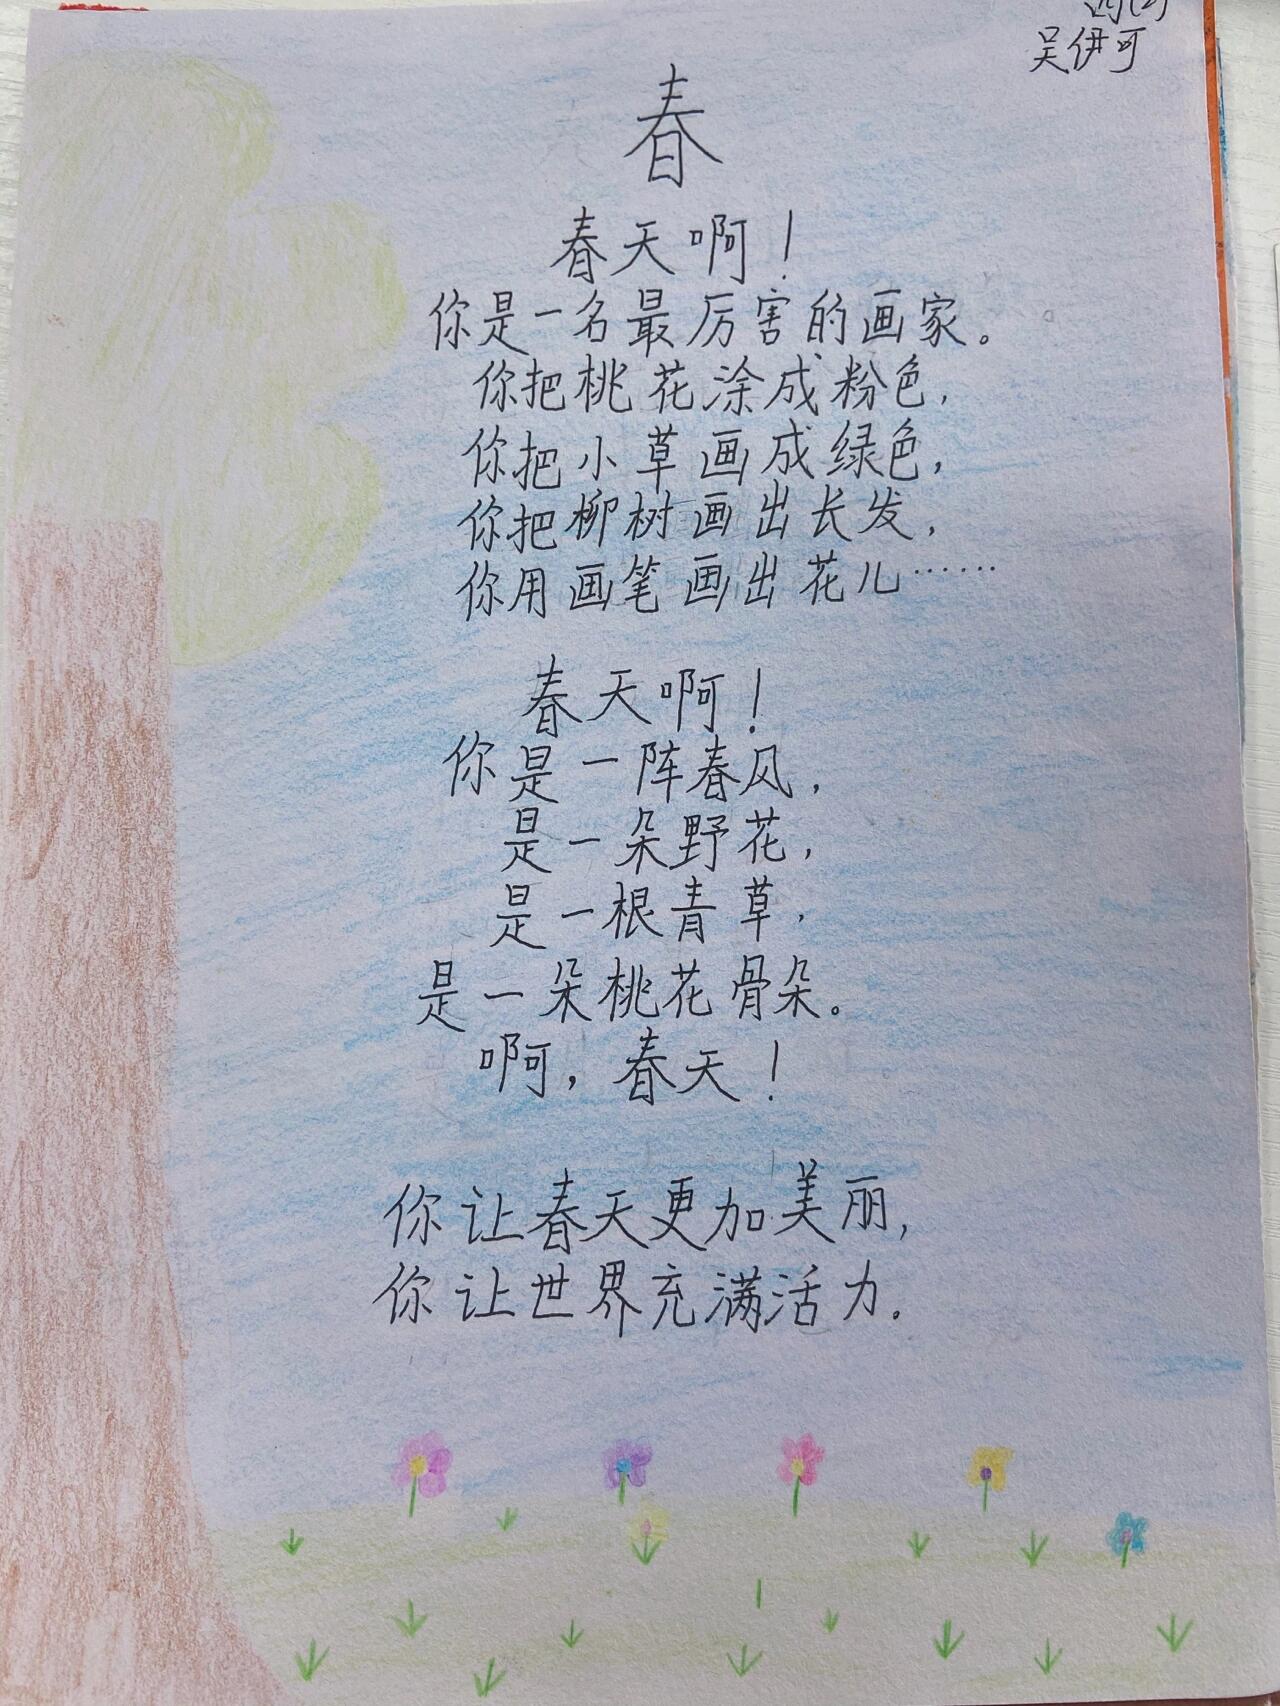 四(2)
吴伊可
春
春天啊！
你是一名最厉害的画家。
你把桃花涂成粉色，
你把小草画成绿色，
你把柳树画出长发，
你用画笔画出花儿……
春天啊！
你是一阵春风，
是一朵野花，
是一根青草，
是一朵桃花骨朵。
啊，春天！
你让春天更加美丽，
你让世界充满活力。